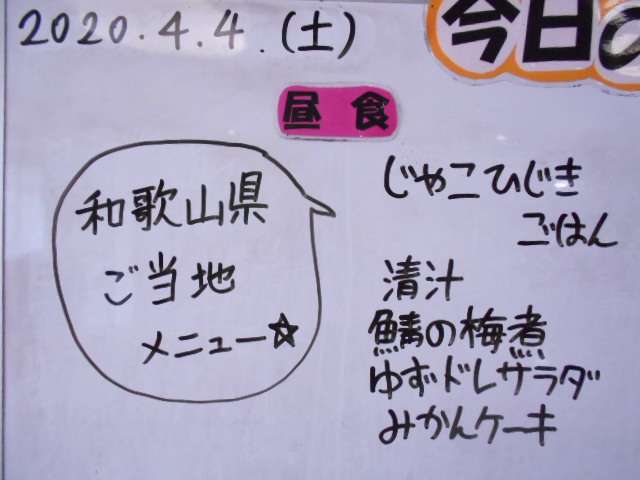 2020.4.4.(土)
今日の
昼食
和歌山県
ご当地
メニュー☆
じゃこひじき
ごはん
清汁
鯖の梅煮
ゆずドレサラダ
みかんケーキ